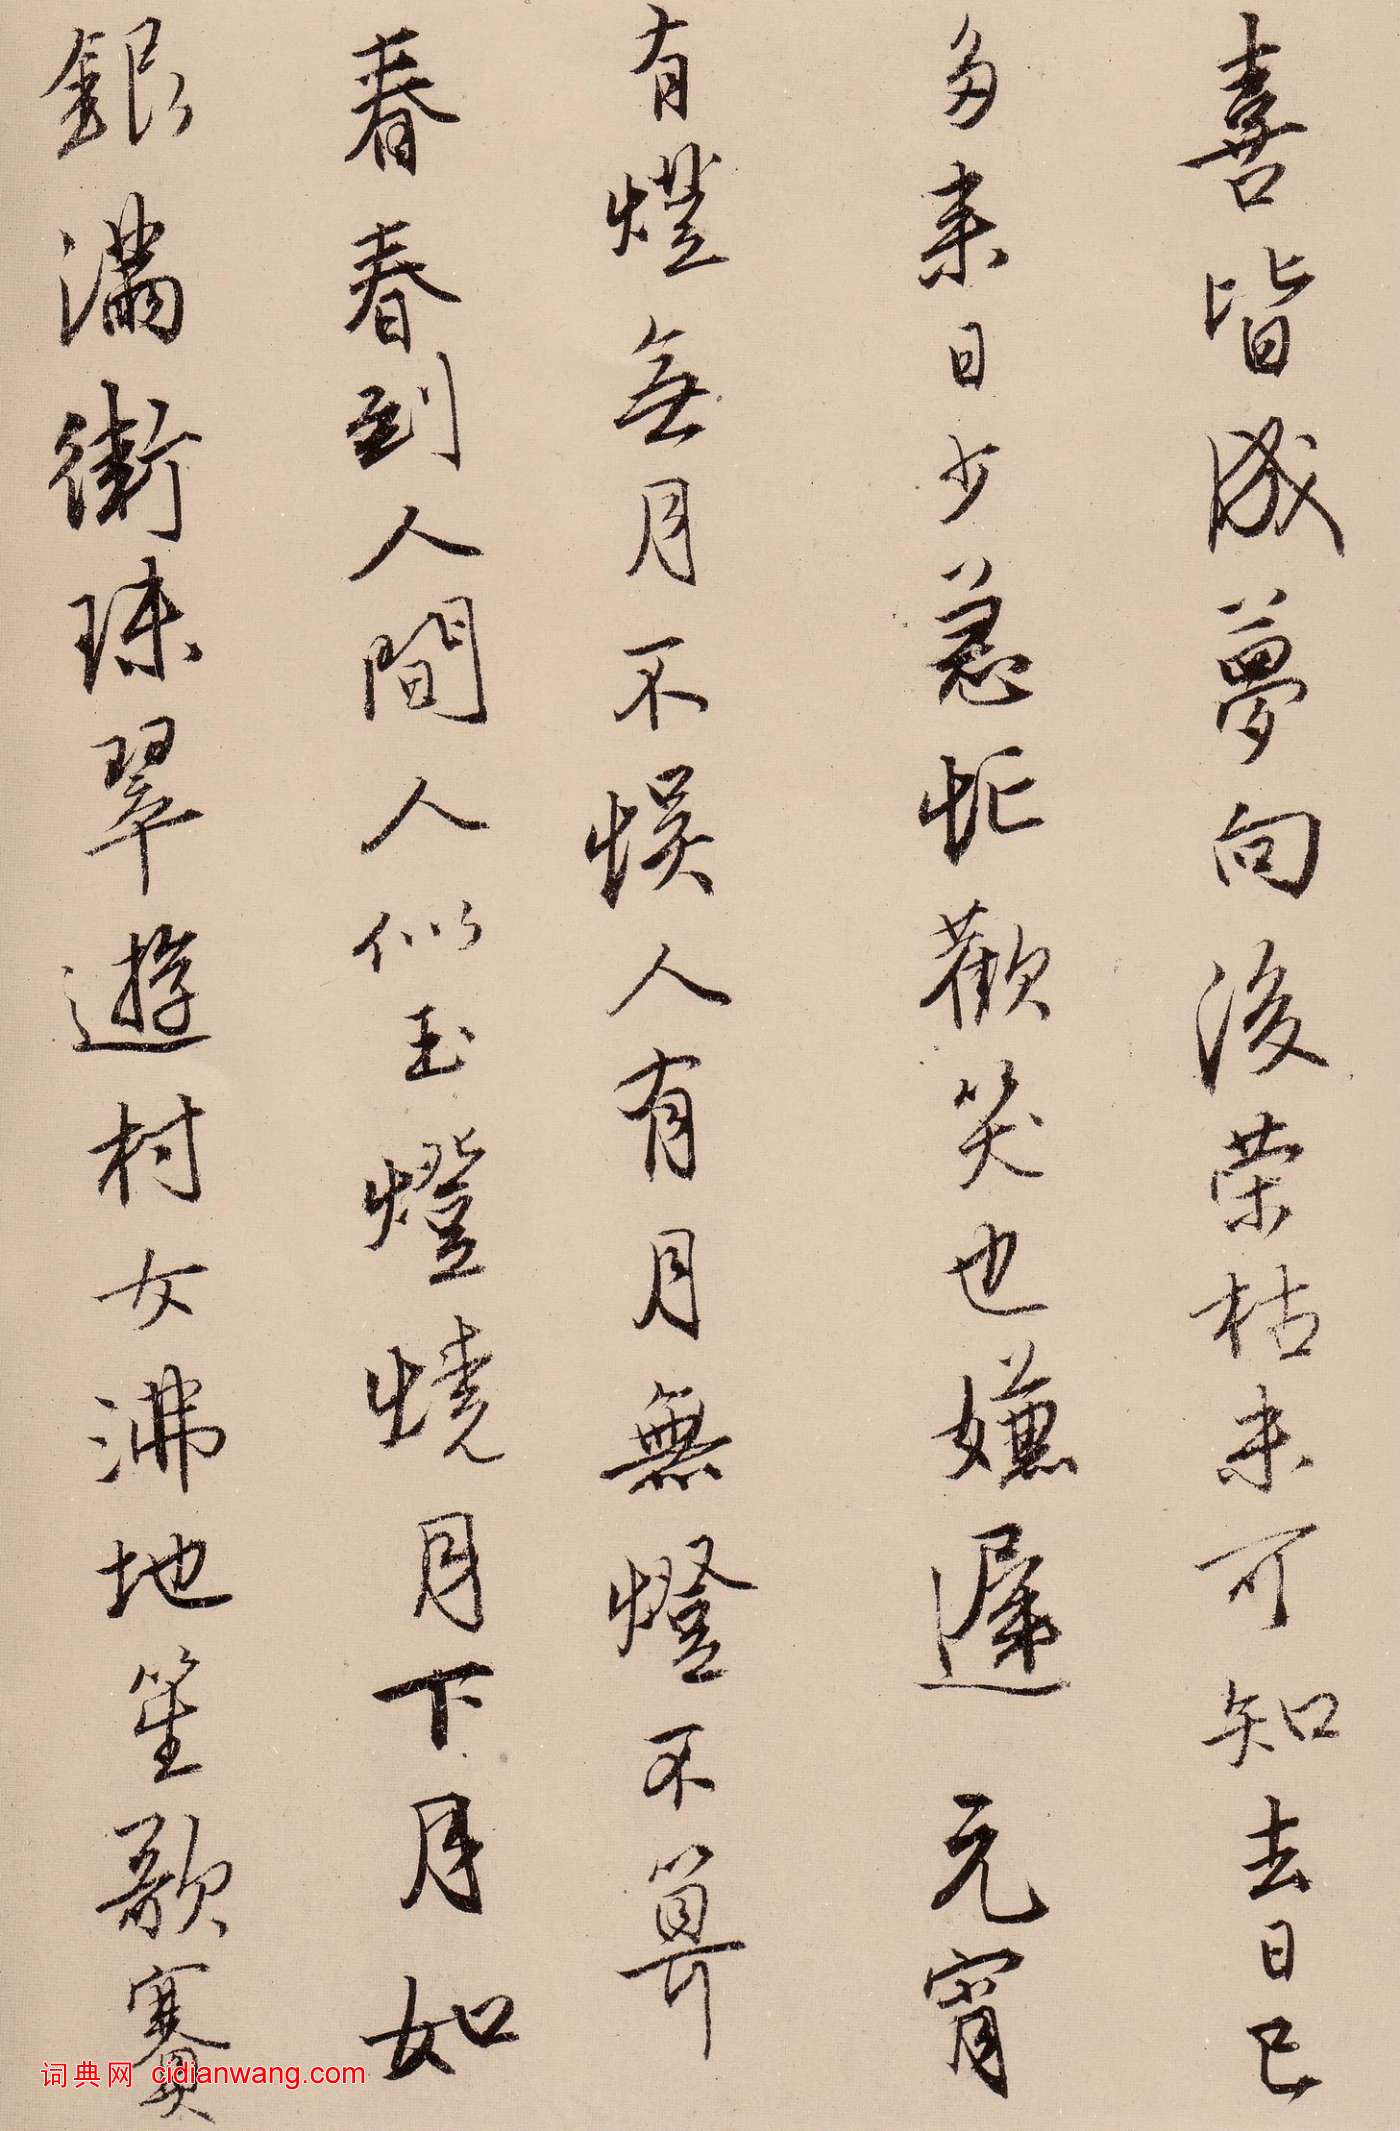 喜皆成夢向後荣枯未可知去日已
多来日少急忙歡笑也嫌遲 元宵
有燈無月不悞人有月無燈不算
春春到人間人似玉燈燒月下月如
銀滿街珠翠遊村女沸地笙歌賽
词典网 cidianwang.com